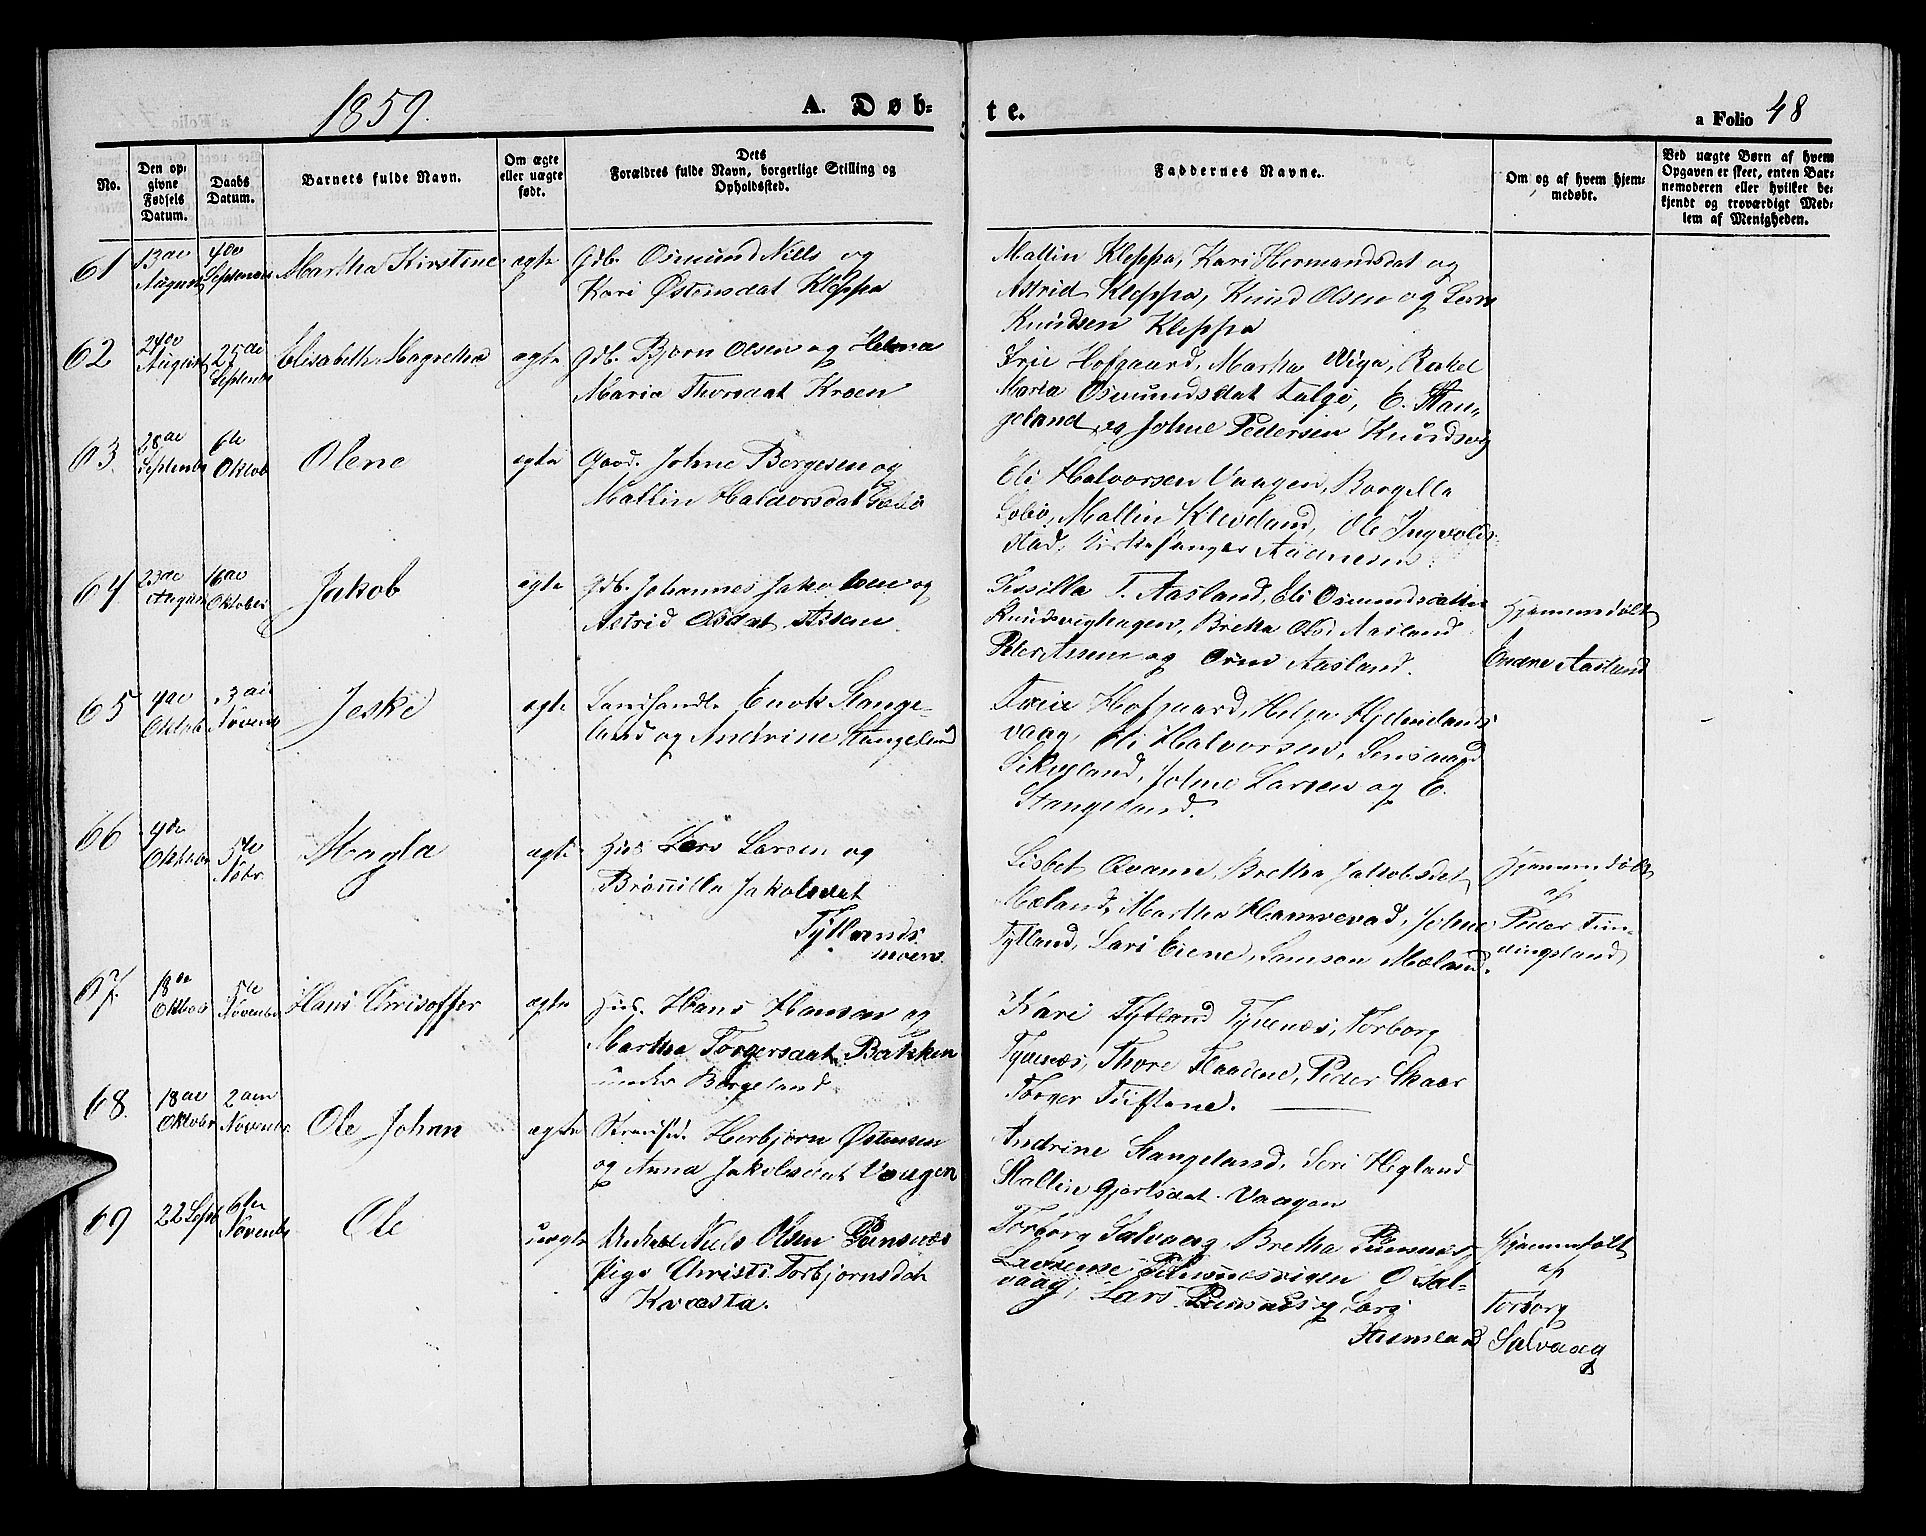 1859.
A. Døb-
te.
a Folio 48
No.
Den op-
givne
Fødsels
Datum.
Daabs
Datum.
Barnets fulde Navn.
Om ægte
eller uægte
født.
Dets
Forældres fulde Navn, borgerlige Stilling og
Opholdsted.
Faddernes Navne.
Om og af hvem hjem-
medøbt.
Ved uægte Børn af hvem
Opgaven er skeet, enten Bar-
nemoderen eller hvilket be-
kjendt og troværdigt Med-
lem af Menigheden.
61
13de
August
4de
Septembr
Martha Kirstine
ægte
Gdb. Osmund Nills og
Kari Østensdat Kleppa
Mallin Kleppa, Kari Hermandsdat og
Astrid Kleppa, Knud Olsen og
Knudsen Kleppa
62
24de
August
25de
Septembr
Elisabeth Magretha
ægte
Gdb. Bjørn Olsen og Helena
Maria Thorsdat Kroen
Hofgaard, Martha Wiga, Rakel
Maria Osmundsdat Talgø, E. Stan-
geland og Johne Pedersen Knudsvig
63.
28de
Septembr
6te
Oktob
Olene
ægte
Gaod. Johne Bergesen og
Mallin Halvorsdat
Eli Halvorsen Vaagen, Borgella
Mallin Kleveland, Ole Ingvolds-
stad, Kirkesanger
64
23de
August
16de
Oktober
Jakob
ægte
Gdb. Johannes Jakobsen og
Astrid Olsdat Assen
T. Aasland, Eli Osmundsdatter
Knudsvighagen, Bretha Ols. Aasland
Peder Assen og Aasland.
Hjemmedøbt
Endre Aasland
65
4de
Oktob
3die
Novemb
Jeske
ægte
Landhandl. Enok Stange-
land og Andrine Stangeland
Hofgaard, Helga Hjelmeland-
vaag, Eli Halvorsen,
Johne Larsen og E.
Stangeland.
66
4de
Oktobr
5te
Nobr.
Magla
ægte
Hus Lars Larsen og
Brønnilla Jakobsdat
Tytlands
moen.
Lisbet Bretha Jakobsdat
Mæland, Martha Hamrevad, Johne
Tytland, Samson Mæland.
Hjemmedøbt
af
Peder Fun-
dingsland
67.
18de
Oktobr
5te
Novembr
Hans Chrisoffer
ægte
Hus. Hans Hansen og
Martha Torgersdat Bakken
under Borgeland
Kari Tytland Tysenæs, Torborg
Tysenæs, Thore Haadene, Peder Skaar
Torger Tuftene.
68.
18de
Oktobr
2den
Novembr
Ole Johan
ægte
Herbjørn Østensen
og Anna Jakobsdat Vaagen
Andrine Stangeland, Seri Hegland
Mallin Gjertsdat Vaagen
69
22 Septb
6te
Novembr
Ole
uægte
Niels Olsen Pundsnæs
pige Christi Torbjørnsdat
Kvæstad.
Torborg Salvaag, Bretha Pundsnæs
O Sal-
vaag, Lars Pundsnæs og Lars
Hjemmedøbt
af
Torborg
Salvaag